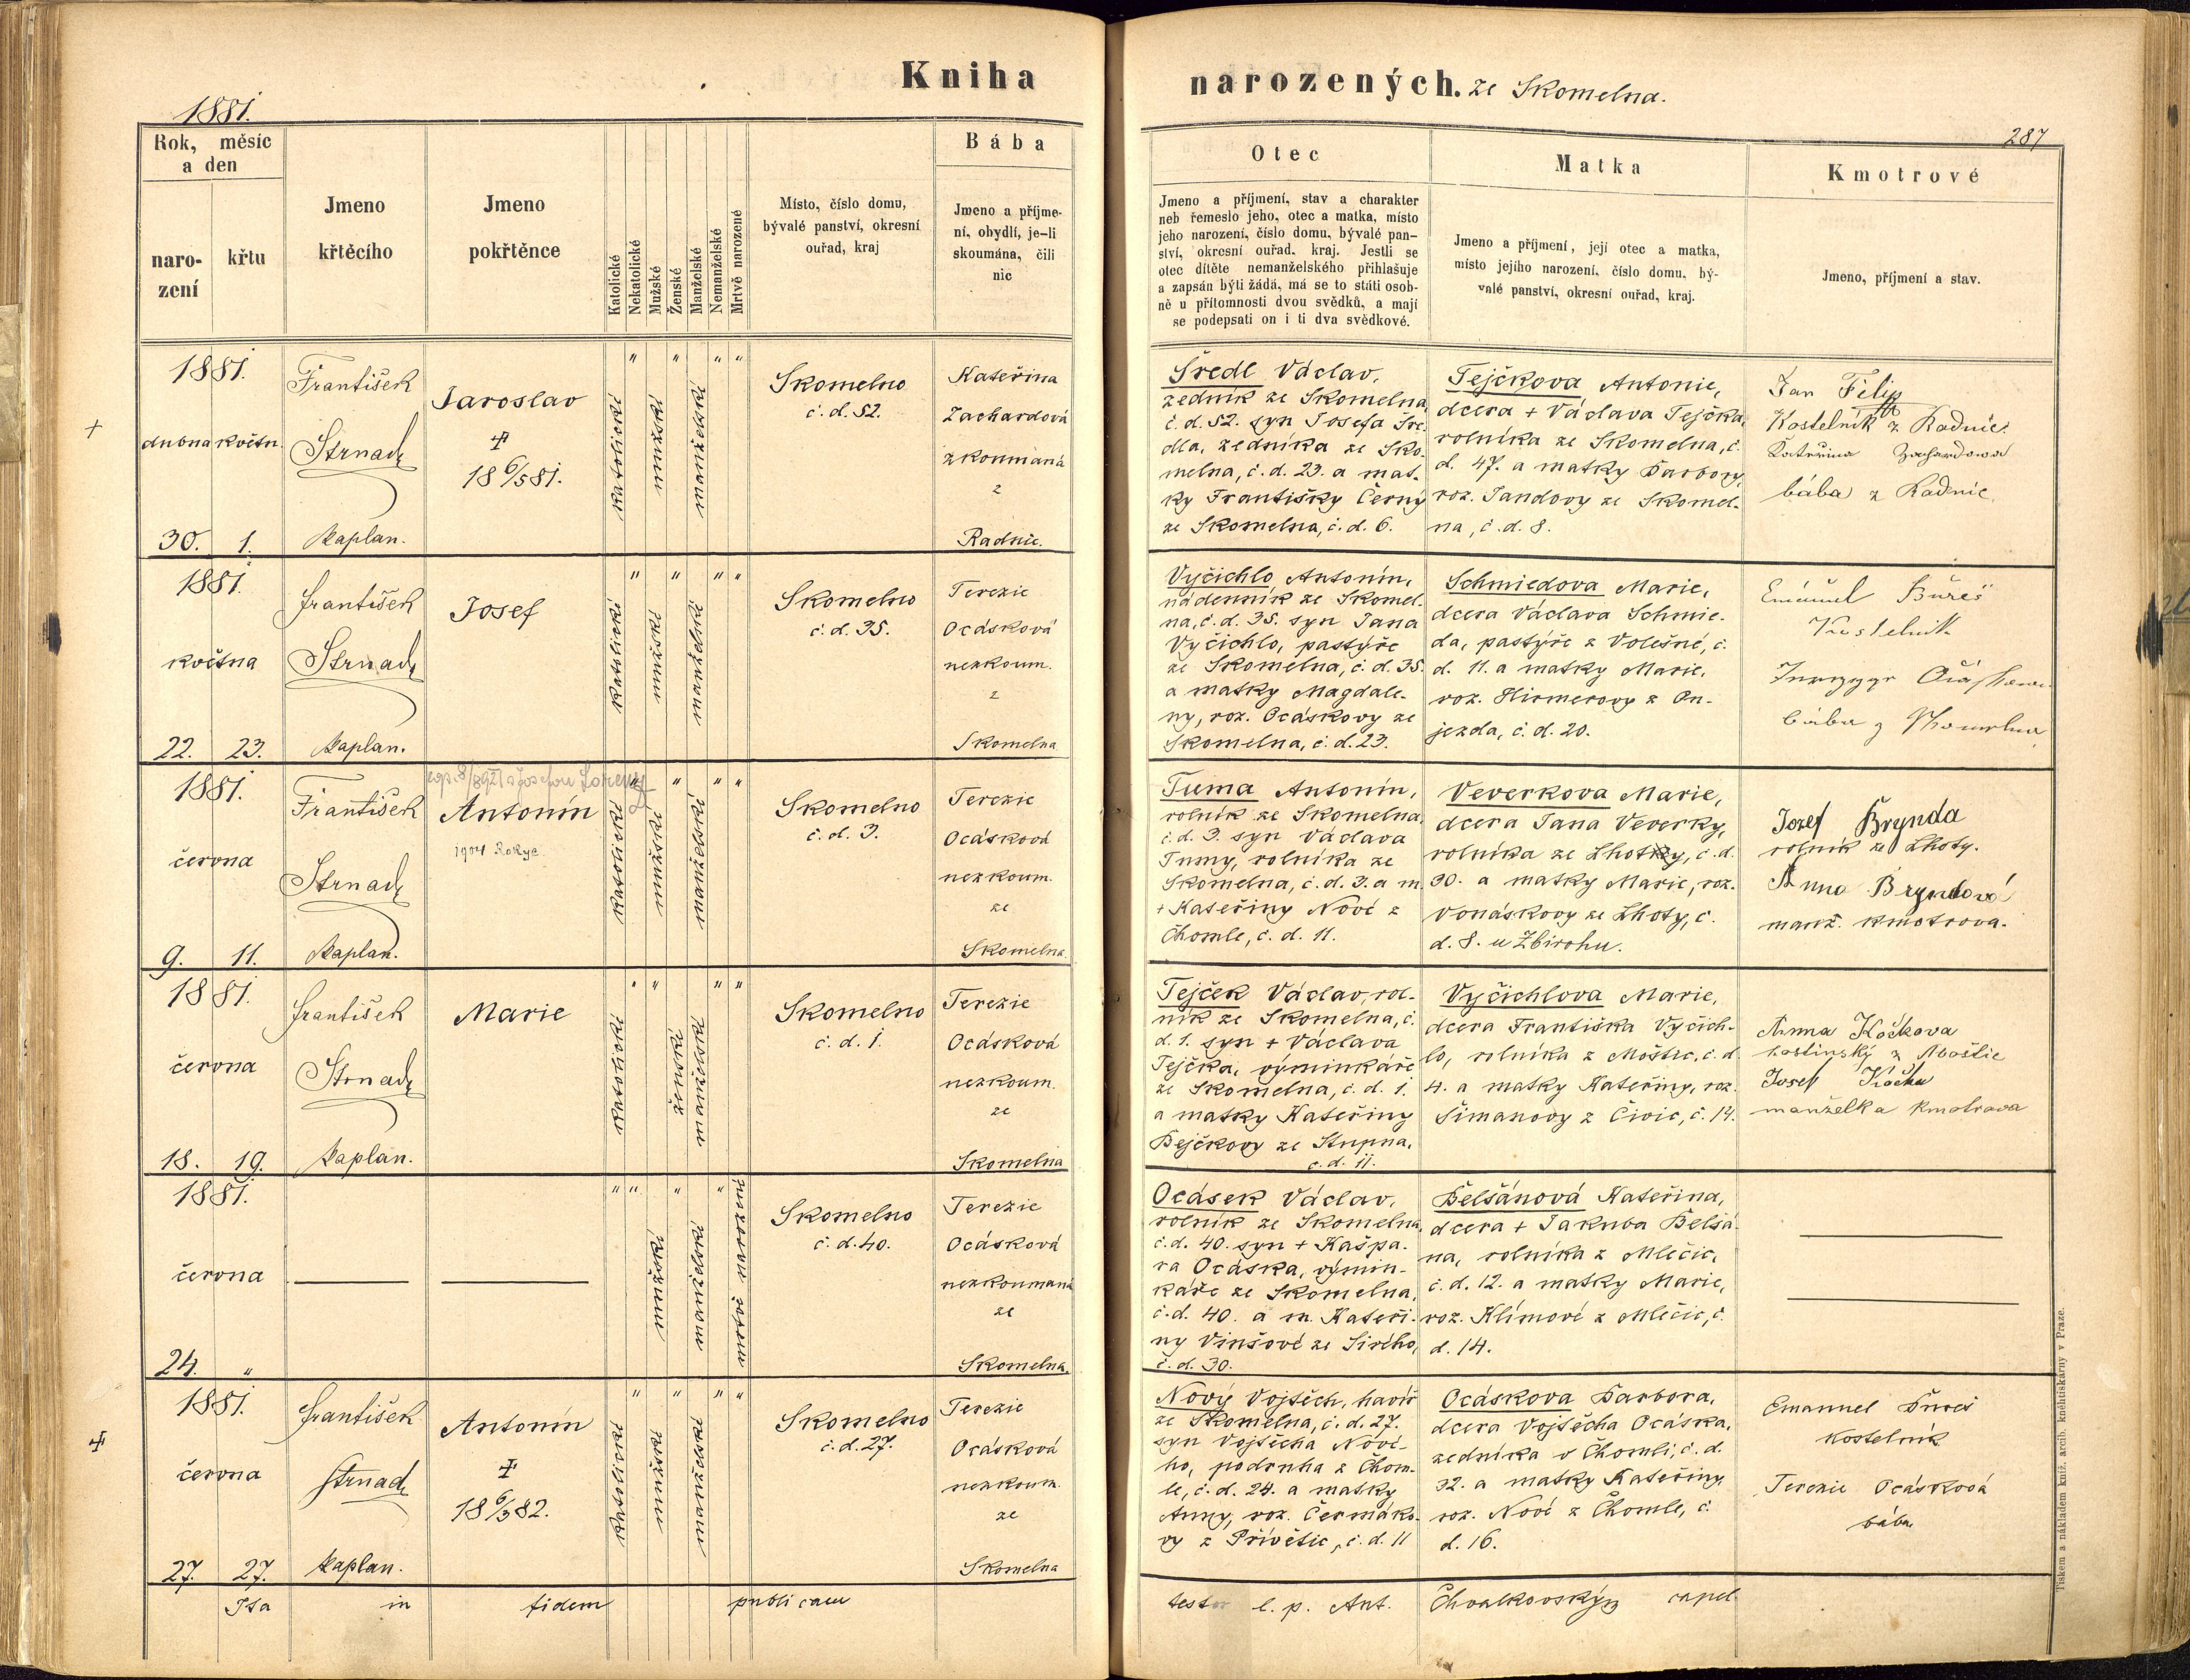 Kniha
narozených. ze Skomelna.
1881.
287
Rok, měsíc
a den
naro-
zení
křtu
Jmeno
křtěcího
Jmeno
pokřtěnce
Katolické
Nekatolické
Mužské
Ženské
Manželské
Nemanželské
Mrtvě narozené
Místo, číslo domu,
bývalé panství, okresní
ouřad, kraj
Bába
Jmeno a příjme-
ní, obydlí, je-li
skoumána, čili
nic
Otec
Jmeno a příjmení, stav a charakter
neb řemeslo jeho, otec a matka, místo
jeho narození, číslo domu, bývalé pan-
ství, okresní ouřad, kraj. Jestli se
otec dítěte nemanželského přihlašuje
a zapsán býti žádá, má se to státi osob-
ně u přítomnosti dvou svědků, a mají
se podepsati on i ti dva svědkové.
Matka
Jmeno a příjmení, její otec a matka,
místo jejího narození, číslo domu, bý-
valé panství, okresní ouřad, kraj.
Kmotrové
Jmeno, příjmení a stav.
1881.
dubna květn.
30. 1.
František
Strnad
kaplan.
Jaroslav
18 6/5 81.
katolické
" mužské
" manželské
" "
Skomelno
č. d. 52.
Kateřina
Zachardová
zkoumaná
z
Radnic.
Šredl Václav,
zedník ze Skomelna,
č. d. 52. syn Josefa Šre-
dla, zedníka ze Sko-
melna, č. d. 23. a mat-
ky Františky Černý
ze Skomelna, č. d. 6.
Tejčkova Antonie,
dcera + Václava Tejčka,
rolníka ze Skomelna, č.
d. 47. a matky Barbory,
roz. Jandovy ze Skomel-
na, č. d. 8.
Jan Filip
Kostelník z Radnic
Kateřina Zachardowá
bába z Radnic
1881.
května
22. 23.
František
Strnad
kaplan.
Josef
katolické
" mužské
" manželské
" "
Skomelno
č. d. 35.
Terezie
Ocásková
nezkoum.
z
Skomelna
Vyčichlo Antonín,
nádenník ze Skomel-
na, č. d. 35. syn Jana
Vyčichlo, pastýře
ze Skomelna, č. d. 35.
a matky Magdale-
ny, roz. Ocáskovy ze
Skomelna, č. d. 23.
Schmiedova Marie,
dcera Václava Schmie-
da, pastýře z Volešné, č.
d. 11. a matky Marie,
roz. Hirmerovy z Ou-
jezda, č. d. 20.
Emanuel Bureš
Kostelník
bába z Skomelna
1881.
června
9. 11.
František
Strnad
kaplan.
Antonín
1904 Rokyc.
katolické
" mužské
" manželské
" "
Skomelno
č. d. 3.
Terezie
Ocásková
nezkoum.
ze
Skomelna.
Tuma Antonín,
rolník ze Skomelna,
č. d. 3. syn Václava
Tumy, rolníka ze
Skomelna, č. d. 3. a m.
+ Kateřiny Nové z
Chomle, č. d. 11.
Veverkova Marie,
dcera Jana Veverky,
rolníka ze Lhotky, č. d.
30. a matky Marie, roz.
Vonáskovy ze Lhoty, č.
d. 8. u Zbirohu.
Jozef Brynda
rolník ze Lhoty.
Anna Bryndová
manž. kmotrova.
1881.
června
18. 19.
František
Strnad
kaplan.
Marie
katolické
" "
ženské
manželské
" "
Skomelno
č. d. 1.
Terezie
Ocásková
nezkoum.
ze
Skomelna
Tejček Václav, rol-
ník ze Skomelna, č.
d. 1. syn + Václava
Tejčka, výminkáře
ze Skomelna, č. d. 1.
a matky Kateřiny
Bejčkovy ze Stupna,
č. d. 11.
Vyčichlova Marie,
dcera Františka Vyčich-
lo, rolníka z Moštic, č. d.
4. a matky Kateřiny, roz.
Šimanovy z Čivic, č. 14.
Anna Kočkova
hostinský z Moštic
Josef Kočka
manželka kmotrova
1881.
června
24. "
" "
mužské
" manželské
" mrtvě narozené
Skomelno
č. d. 40.
Terezie
Ocásková
nezkoumaná
ze
Skomelna.
Ocásek Václav,
rolník ze Skomelna,
č. d. 40. syn + Kašpa-
ra Ocáska, výmin-
káře ze Skomelna,
č. d. 40. a m. Kateři-
ny Vinšové ze Sirého,
č. d. 30.
Belšánová Kateřina,
dcera + Jakuba Belšá-
na, rolníka z Mlečic,
č. d. 12. a matky Marie,
roz. Klímové z Mlečic, č.
d. 14.
1881.
června
27. 27.
František
Strnad
kaplan.
Antonín
18 6/3 82.
katolické
" mužské
" manželské
" "
Skomelno
č. d. 27.
Terezie
Ocásková
nezkoum.
ze
Skomelna
Nový Vojtěch, havíř
ze Skomelna, č. d. 27.
syn Vojtěcha Nové-
ho, podruha z Chom-
le, č. d. 24. a matky
Anny, roz. Čermáko-
vy z Přívětic, č. d. 11
Ocáskova Barbora,
dcera Vojtěcha Ocáska,
zedníka v Chomli, č. d.
32. a matky Kateřiny,
roz. Nové z Chomle, č.
d. 16.
Emanuel Bureš
kostelník
Terezie Ocásková
bába
Ita in fidem publicam
testor l. p. Ant. Chvalkovský capel.
Tiskem a nákladem kníž. arcib. knihtiskárny v Praze.